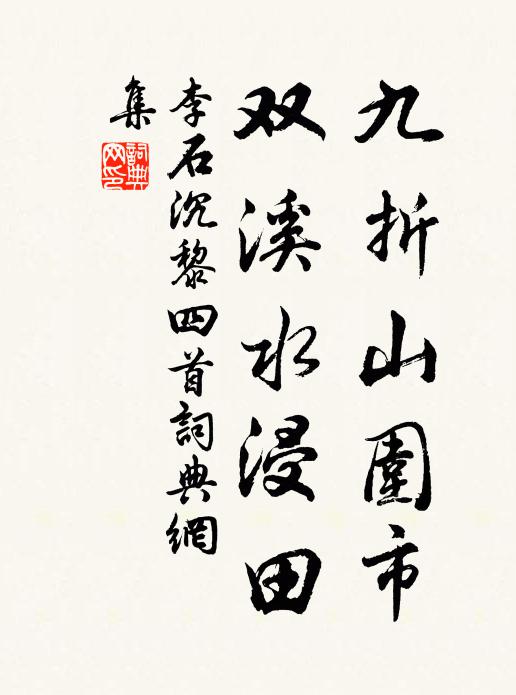 九折山圍市
双溪水浸田
李石沉黎四首詞典網
集
詞典
网印